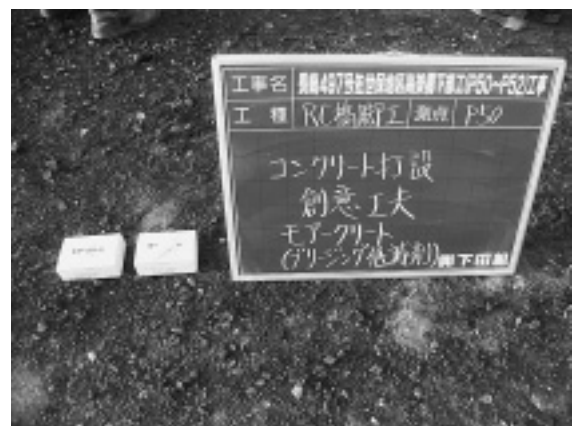 工事名 長崎497号佐世保地区高架橋下部工(P50~P52)工事
工種 RC橋脚P工 測点 P50
コンクリート打設
創意工夫
モアークリート
(ブリージング低減剤)